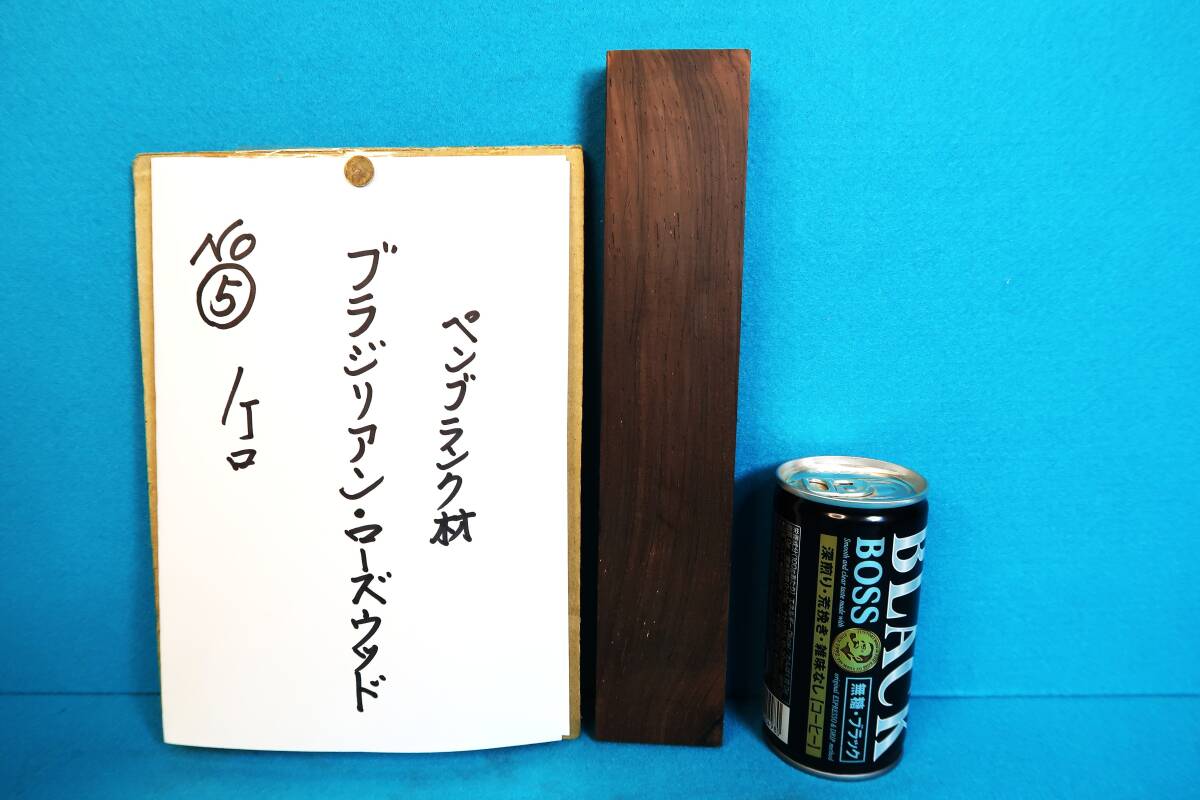 ペンブランク材
ブラジリアン・ローズウッド
NO
⑤
1ケ口
BLACK
BOSS
Smooth and clear taste made with
original ESPRESSO & DRIP method
深煎り・荒挽き・雑味なし
[コーヒー]
無糖・ブラック